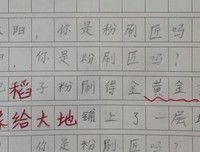 阳,你是粉刷匠吗
阳,你是粉刷匠吗?
稻子粉刷得金黄金
给大地铺上了一层